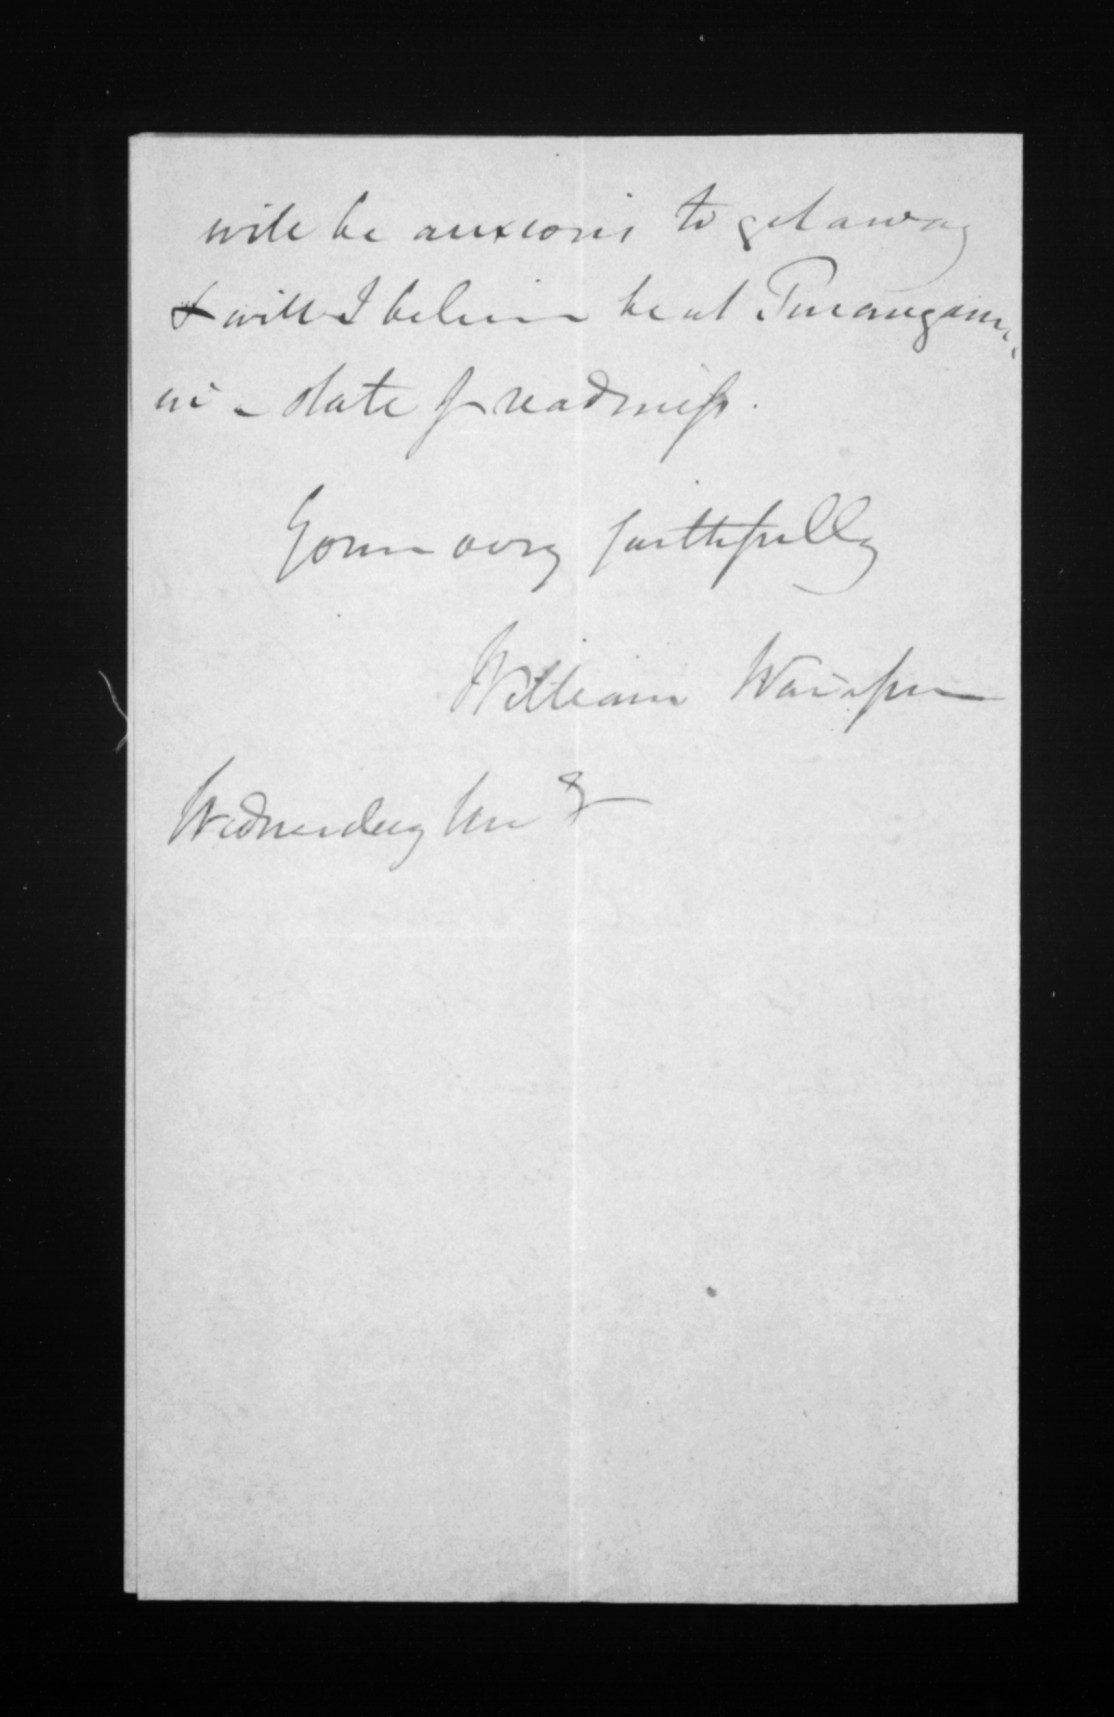 will be anxious to get away
& will I believe be at Turanganui
in a state of readiness.
Yours very faithfully
William
Wednesday